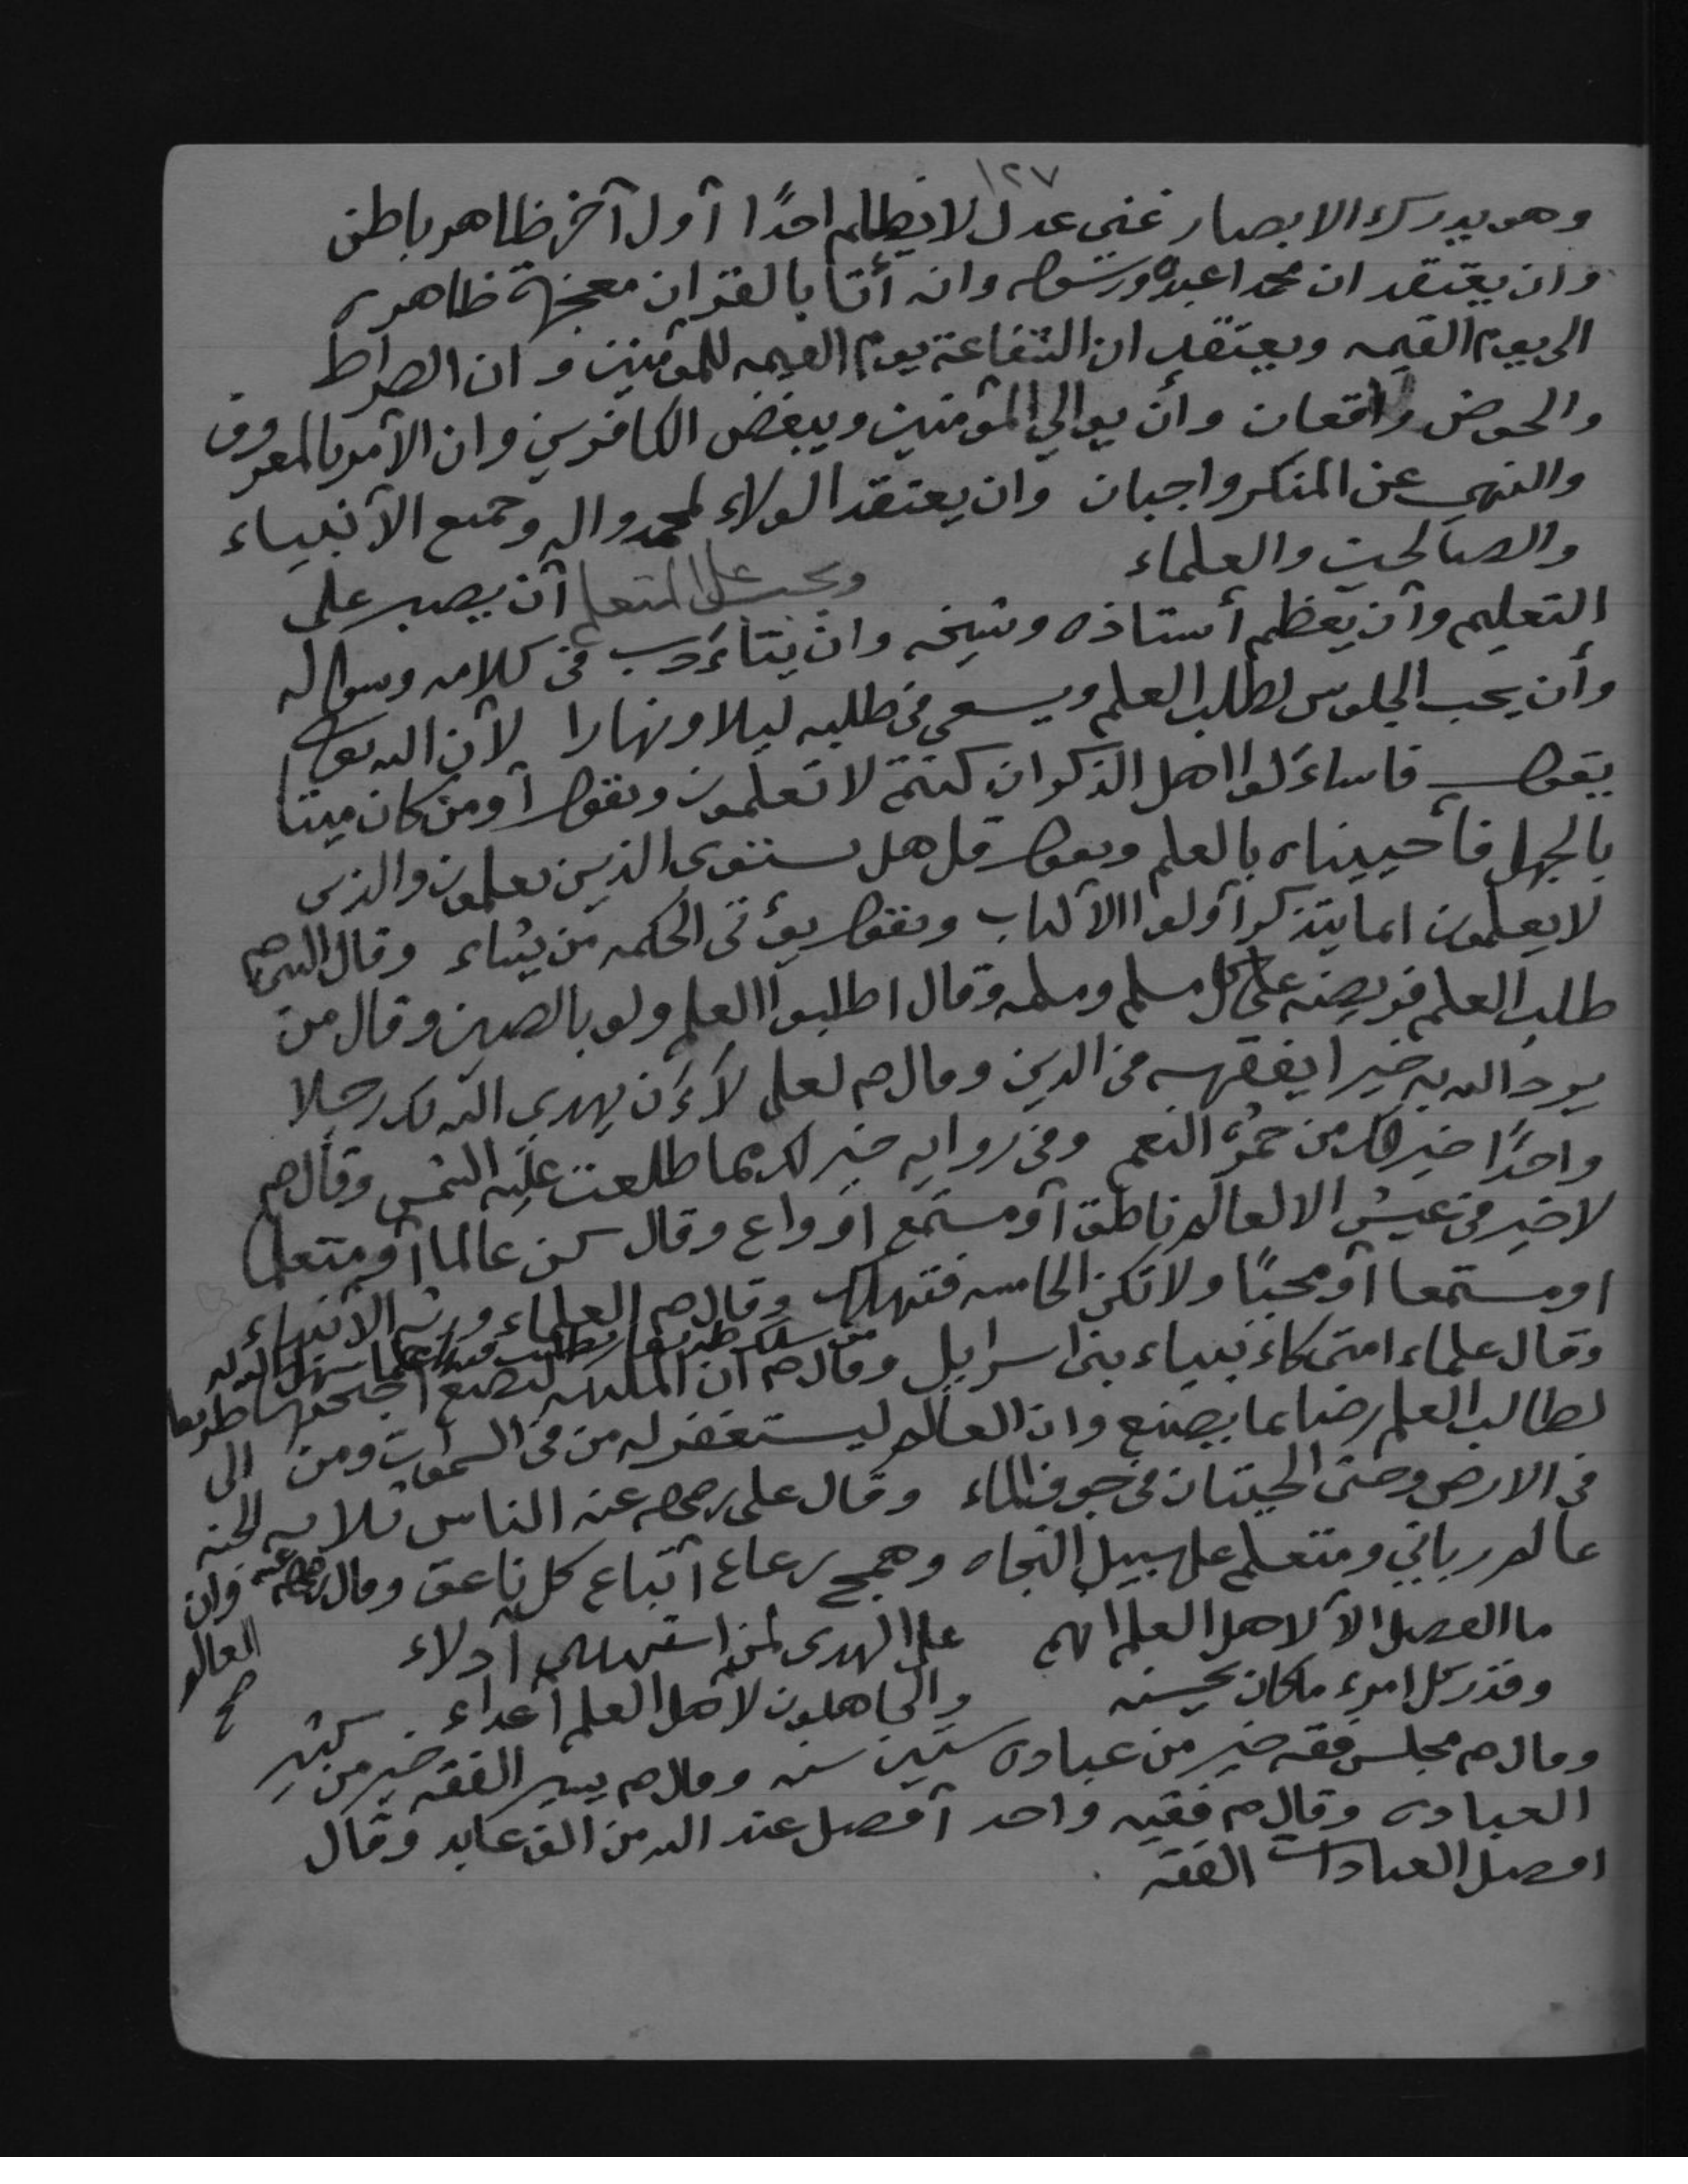 ١٢٧
وهو يدرك الابصار غني عدل لا يظلم احدًا أول آخر ظاهر باطن
وان يعتقد ان محمدا عبده ورسوله وانه أتا بالقران معجزة ظاهره
الى يوم القيمه ويعتقد ان الشفاعة يوم القيمه للمؤمنين وان الصراط
والحوض واقعان وأن يوالي المؤمنين ويبغض الكافرين وان الأمر بالمعروف
والنهي عن المنكر واجبان وان يعتقد الولاء لمحمد واله وجميع الأنبياء
والصالحين والعلماء ويجب على المتعلم أن يصبر على
التعليم وأن يعظم أستاذه وشيخه وان يتأدب في كلامه وسواله
وأن يحب الجلوس لطلب العلم ويسعى في طلبه ليلا ونهارا لأن الله تعالى
يقول فاساءلوا اهل الذكر ان كنتم لا تعلمون ويقول أومن كان ميتا
بالجهل فأحييناه بالعلم ويقول قل هل يستوى الذين يعلمون والذين
لا يعلمون انما يتذكر أولوا الألباب ويقول يؤتى الحكمه من يشاء وقال النبي صم
طلب العلم فريضه على كل مسلم ومسلمه وقال اطلبوا العلم ولو بالصين وقال من
يرد الله به خيرا يفقهه في الدين وقال صم لعلي لأن يهدى الله بك رجلا
واحدًا خير لك من حمر النعم وفي روايه خير لك مما طلعت عليه الشمس وقال صم
لا خير في عيش الا لعالم ناطق أو مستمع او واع وقال كن عالما أو متعلما
او مستمعا أو محبًا ولا تكن الخامسه فتهلك وقال صم العلماء ورثه الأنبياء
من سلك طريقا يطلب فيه علما سهل الله له طريقا الى الجنه
وقال علماء امتى كأنبياء بني اسرايل وقال صم ان الملئكه لتضع أجنحتها
لطالب العلم رضا بما يصنع وان العالم ليستغفر له من في السموات ومن
في الارض وحتى الحيتان في جوف الماء وقال على رضي الله عنه الناس ثلاثه
عالم رباني ومتعلم على سبيل النجاه وهمج رعاع أتباع كل ناعق وقال رضي الله عنه
وان العالم صح
ما الفضل الا لاهل العلم انهم على الهدى لمن استهدى أدلاء
وقدر كل امرء ما كان يحسنه والجاهلون لأهل العلم أعداء
وقال صم مجلس فقه خير من عبادة ستين سنه وقال صم يسير الفقه خير من كثير
العباده وقال صم فقيه واحد أفضل عند الله من الف عابد وقال
افضل العبادات الفقه